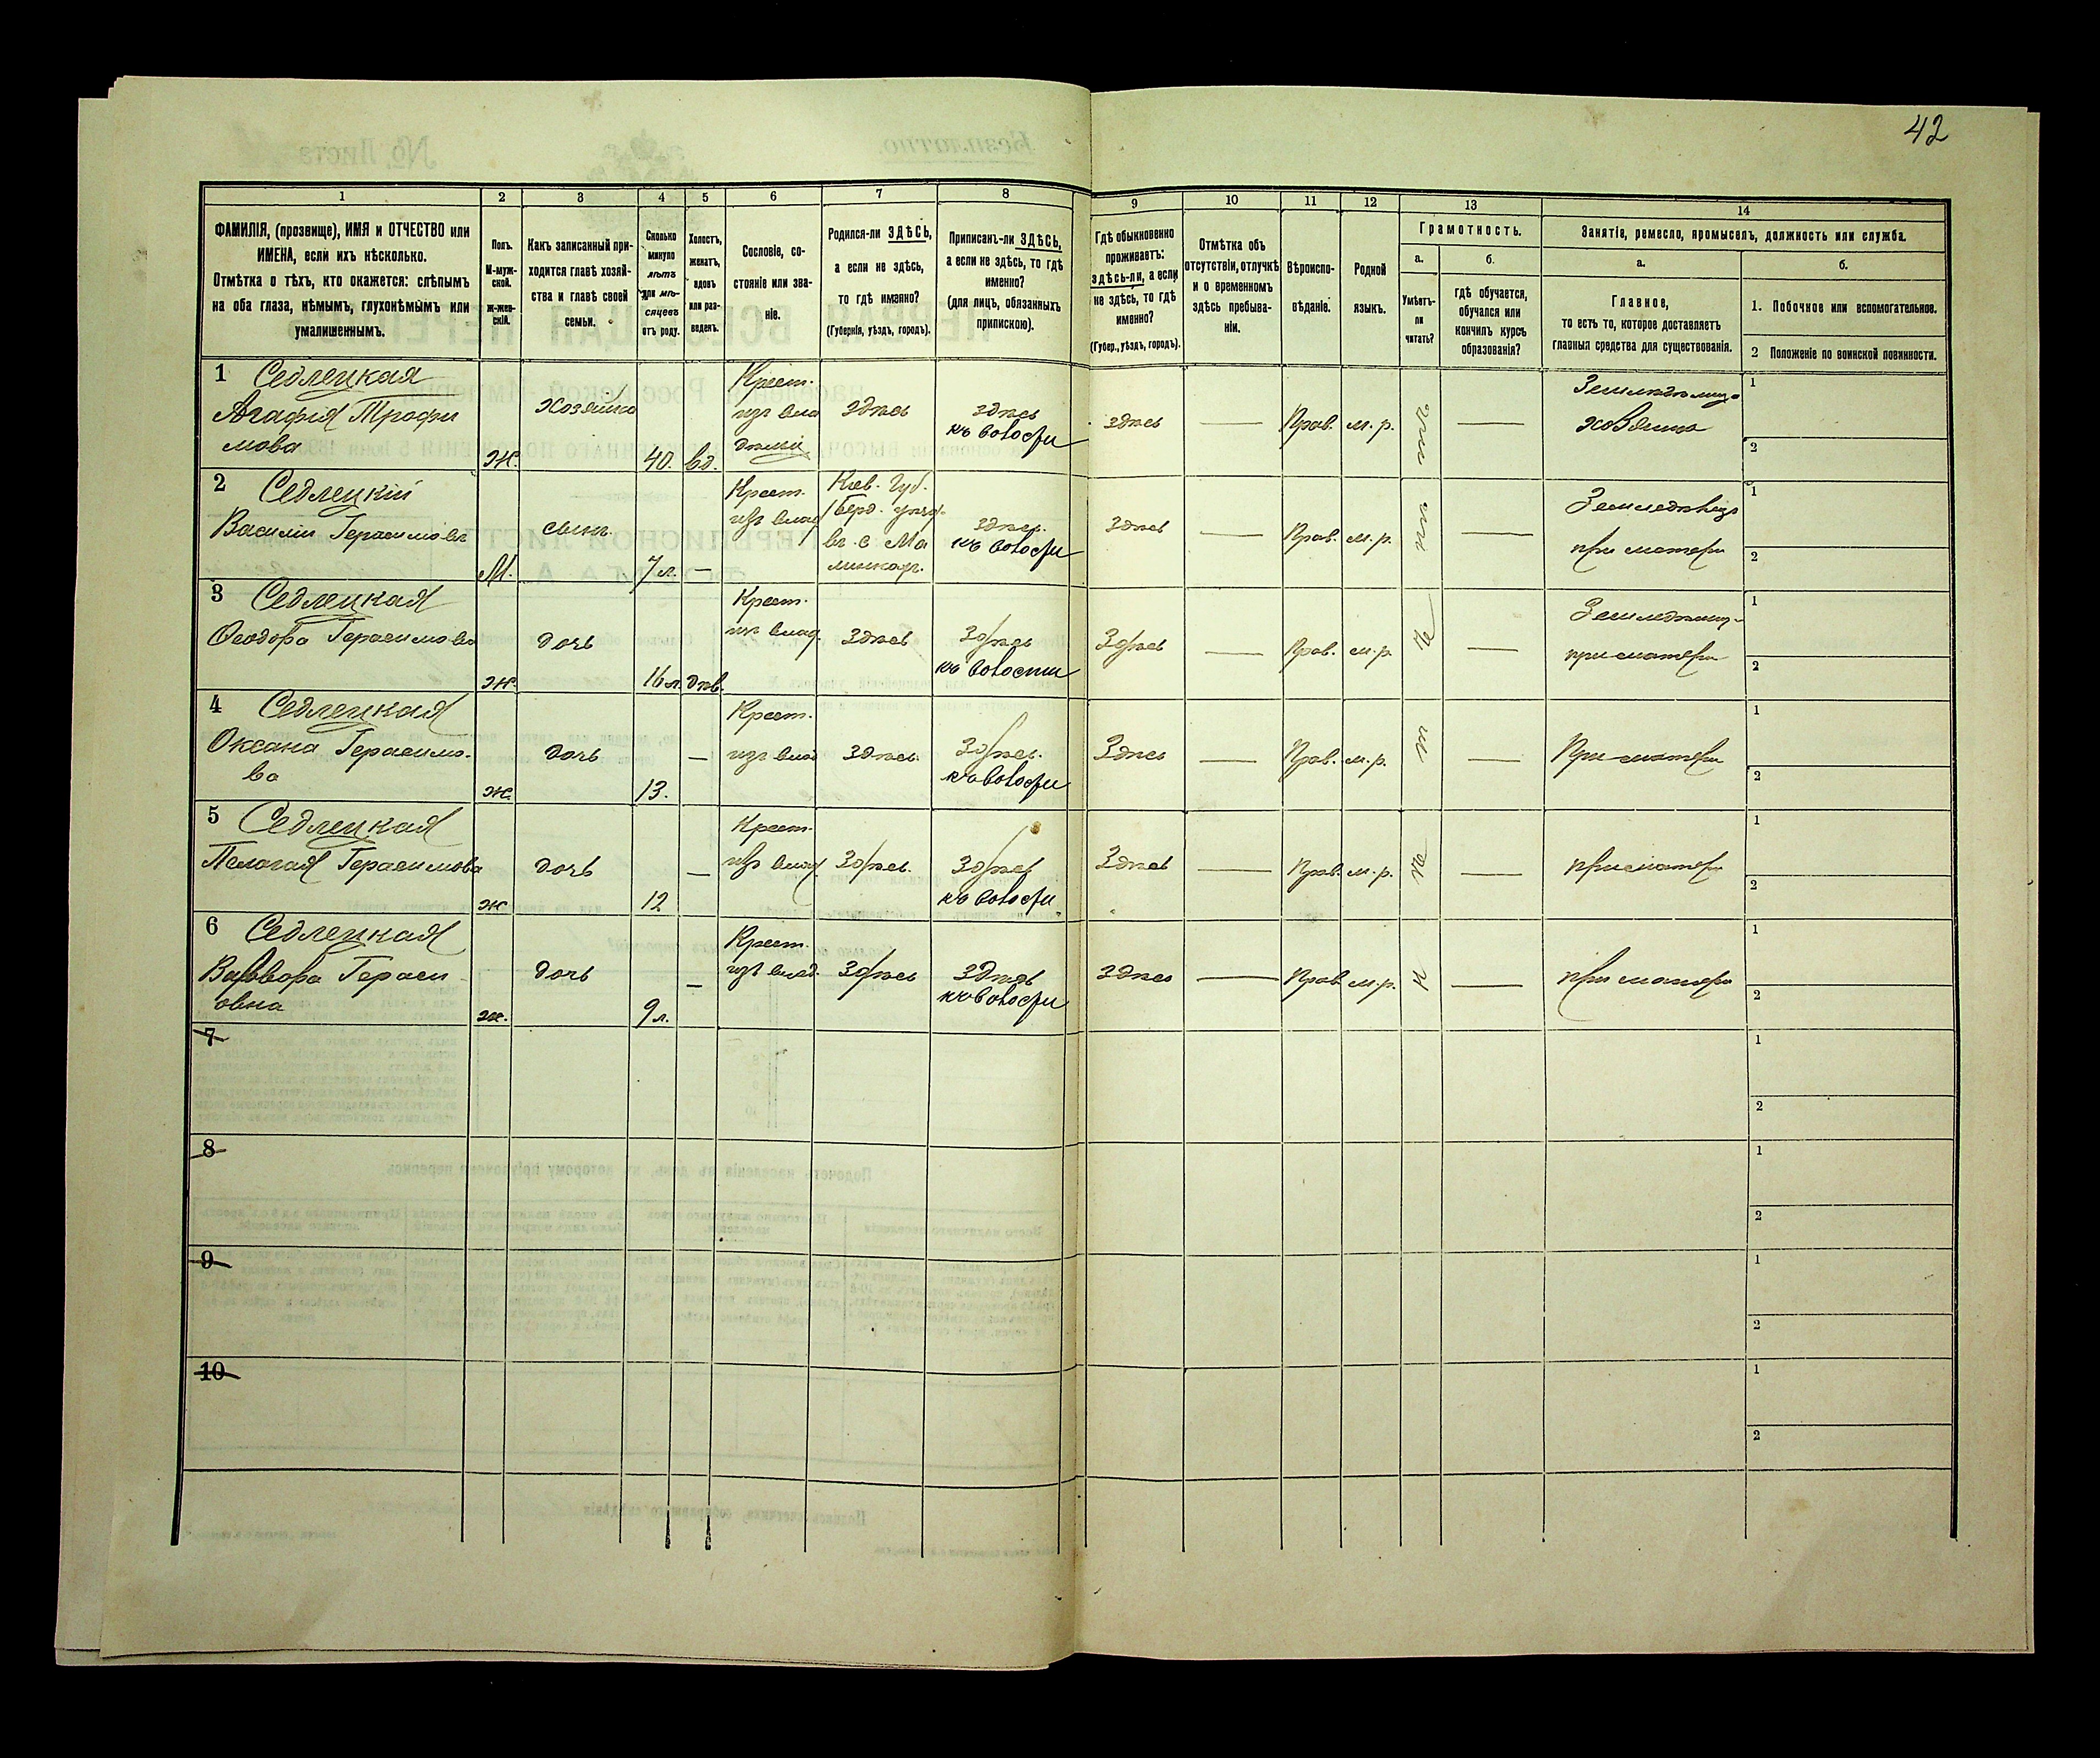 42
1
2
3
4
5
6
7
8
9
10
11
12
13
14
ФАМИЛІЯ, (прозвище), ИМЯ и ОТЧЕСТВО или
ИМЕНА, если ихъ нѣсколько.
Отмѣтка о тѣхъ, кто окажется: слѣпымъ
на оба глаза, нѣмымъ, глухонѣмымъ или
умалишеннымъ.
Полъ.
М-муж-
ской.
ж-жен-
скій.
Какъ записанный при-
ходится главѣ хозяй-
ства и главѣ своей
семьи.
Сколько
минуло
лѣтъ
или мѣ-
сяцевъ
отъ роду.
Холостъ,
женатъ,
вдовъ
или раз-
веденъ.
Сословіе, со-
стояніе или зва-
ніе.
Родился-ли ЗДѢСЬ,
а если не здѣсь,
то гдѣ именно?
(Губернія, уѣздъ, городъ).
Приписанъ-ли ЗДѢСЬ,
а если не здѣсь, то гдѣ
именно?
(для лицъ, обязанныхъ
припискою).
Гдѣ обыкновенно
проживаетъ:
здѣсь-ли, а если
не здѣсь, то гдѣ
именно?
(Губер., уѣздъ, городъ).
Отмѣтка объ
отсутствіи, отлучкѣ
и о временномъ
здѣсь пребыва-
ніи.
Вѣроиспо-
вѣданіе.
Родной
языкъ.
Грамотность.
а.
б.
Умѣетъ-
ли
читать?
гдѣ обучается,
обучался или
кончилъ курсъ
образованія?
Занятіе, ремесло, промыселъ, должность или служба.
а.
б.
Главное,
то есть то, которое доставляетъ
главныя средства для существованія.
1. Побочное или вспомогательное.
2 Положеніе по воинской повинности.
1 Седлецкая
Агафія Трофи
мова
Ж.
Хозяйка
40.
вд.
Крест.
изъ вла
здѣсь
здѣсь
къ волости
здѣсь
—
Прав.
м. р.
—
хозяйка
1
2
2 Седлецкій
Василій Герасимовъ
М.
сынъ
7 л.
—
Крест.
изъ влад
Кіев. Губ.
Берд. уѣзд.
въ с. Ма
здѣсь.
къ волости
здѣсь
—
Прав.
м. р.
—
при матери
1
2
3 Седлецкая
Ѳеодора Герасимова
ж.
дочь
16 л.
дѣв.
Крест.
изъ влад.
Здѣсь
Здѣсь
къ волости
Здѣсь
—
Прав.
м. р.
—
при матери
1
2
4 Седлецкая
Оксана Герасимо-
ва
ж.
дочь
13.
—
Крест.
изъ влад
здѣсь.
Здѣсь.
къ волости
Здѣсь
—
Прав.
м. р.
—
При матери
1
2
5 Седлецкая
Пелагая Герасимова
ж
дочь
12
—
Крест.
изъ влад
Здѣсь.
Здѣсь
къ волости
Здѣсь
—
Прав.
м. р.
—
при матери
1
2
6 Седлецкая
Варвара Гераси
овна
ж.
дочь
9 л.
—
Крест.
изъ влад.
Здѣсь
здѣсь
къ волости
здѣсь
—
Прав
м. р.
—
при матери
1
2
7
1
2
8
1
2
9
1
2
10
1
2